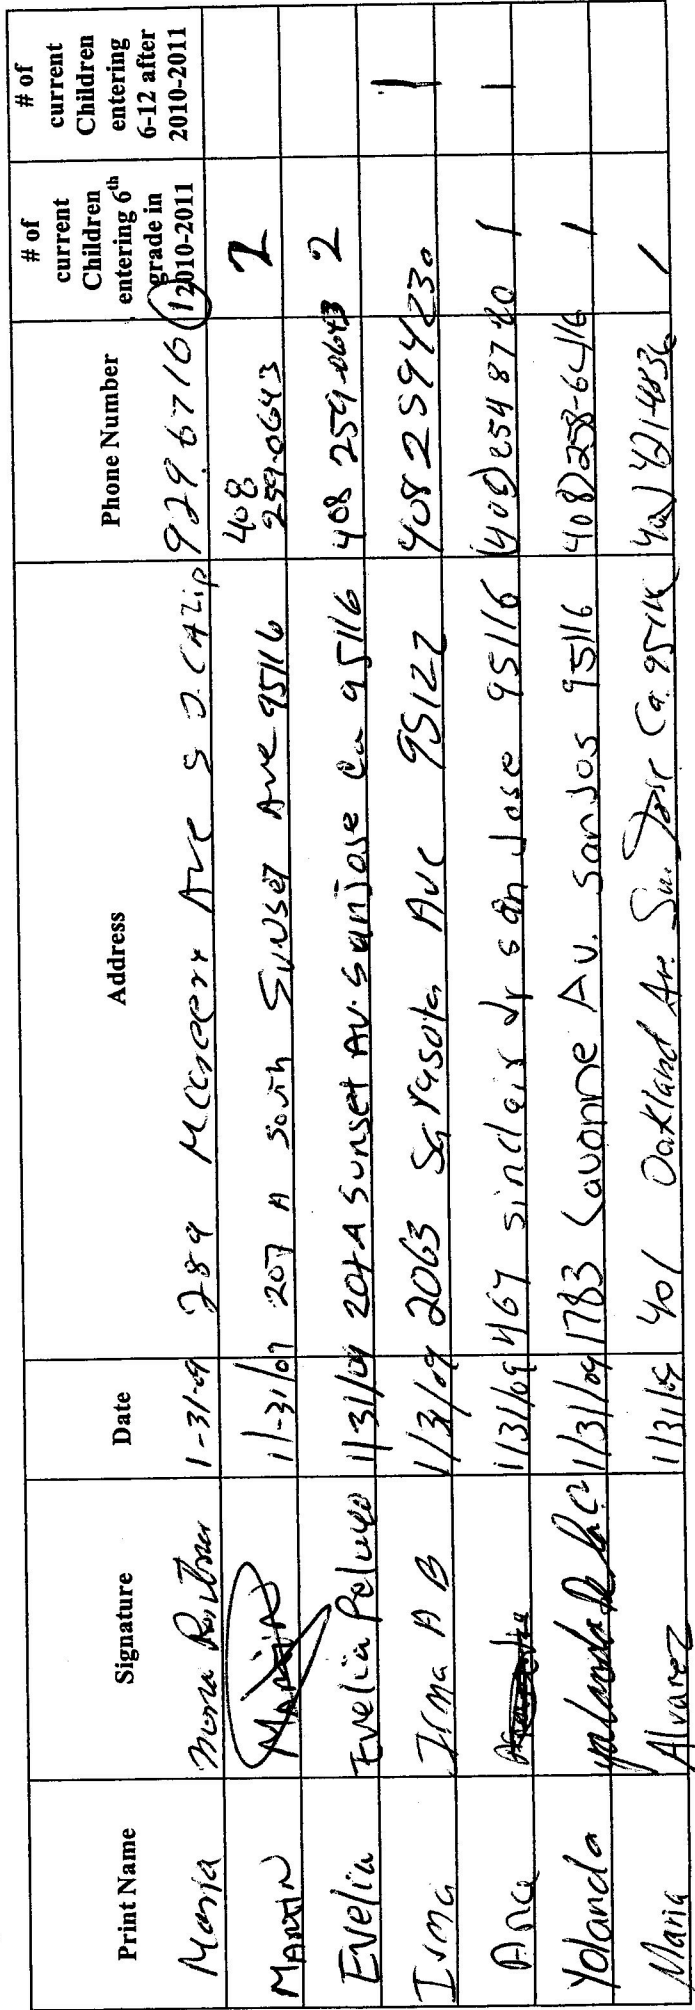 Print Name Signature Date Address Phone Number # of current Children entering 6th grade in 2010-2011 # of current Children entering 6-12 after 2010-2011
Maria Maria 1-31-09 284 Ave S J. CA Zip 9296716 1
MARTIN MARTIN 11-31/09 207 A South SUNSET Ave 95116 408 259-0643 2
Evelia Evelia 1/31/09 207-A Sunset AV. Sanjose Ca 95116 408 259-0643 2
Irma Irma A B 1/31/09 2063 Sarasota Ave 95122 408 2594230 1
Ana 1/31/09 467 sinclair dr san Jose 95116 (408) 2548720 1 1
Yolanda yolanda De la C 1/31/09 1783 Lavonne Av. San Jos 95116 408) 258-6416 1
Maria Alvarez 1/31/09 401 Oakland Av. San Jose Ca. 95116 408) 421-4836 1